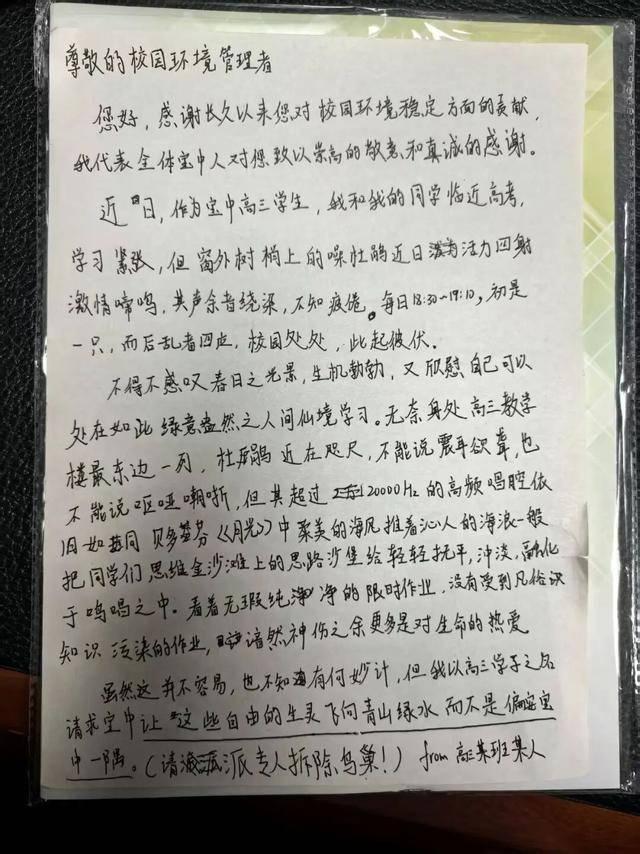 尊敬的校园环境管理者
您好，感谢长久以来您对校园环境稳定方面的贡献，
我代表全体宝中人对您致以崇高的敬意和真诚的感谢。
近日，作为宝中高三学生，我和我的同学临近高考，
学习紧张，但窗外树梢上的噪杜鹃近日活力四射
激情啼鸣，其声余音绕梁，不知疲倦。每日18:30~19:10，初是
一只，而后乱者四应，校园处处，此起彼伏。
不得不感叹春日之光景，生机勃勃，又欣慰自己可以
处在如此绿意盎然之人间仙境学习。无奈身处高三教学
楼最东边一列，杜鹃近在咫尺，不能说震耳欲聋，也
不能说呕哑嘲哳，但其超过20000Hz的高频唱腔依
旧如同贝多芬《月光》中聚美的海风推着沁人的海浪一般
把同学们思维金沙滩上的思路沙堡给轻轻抚平，冲淡，融化
于鸣唱之中。看着无瑕纯净的限时作业，没有受到凡俗识
知识污染的作业，黯然神伤之余更多是对生命的热爱
虽然这并不容易，也不知有何妙计，但我以高三学子之名
请求宝中让这些自由的生灵飞向青山绿水而不是偏安宝
中一隅。（请派专人拆除鸟巢！） from 高三某班某人